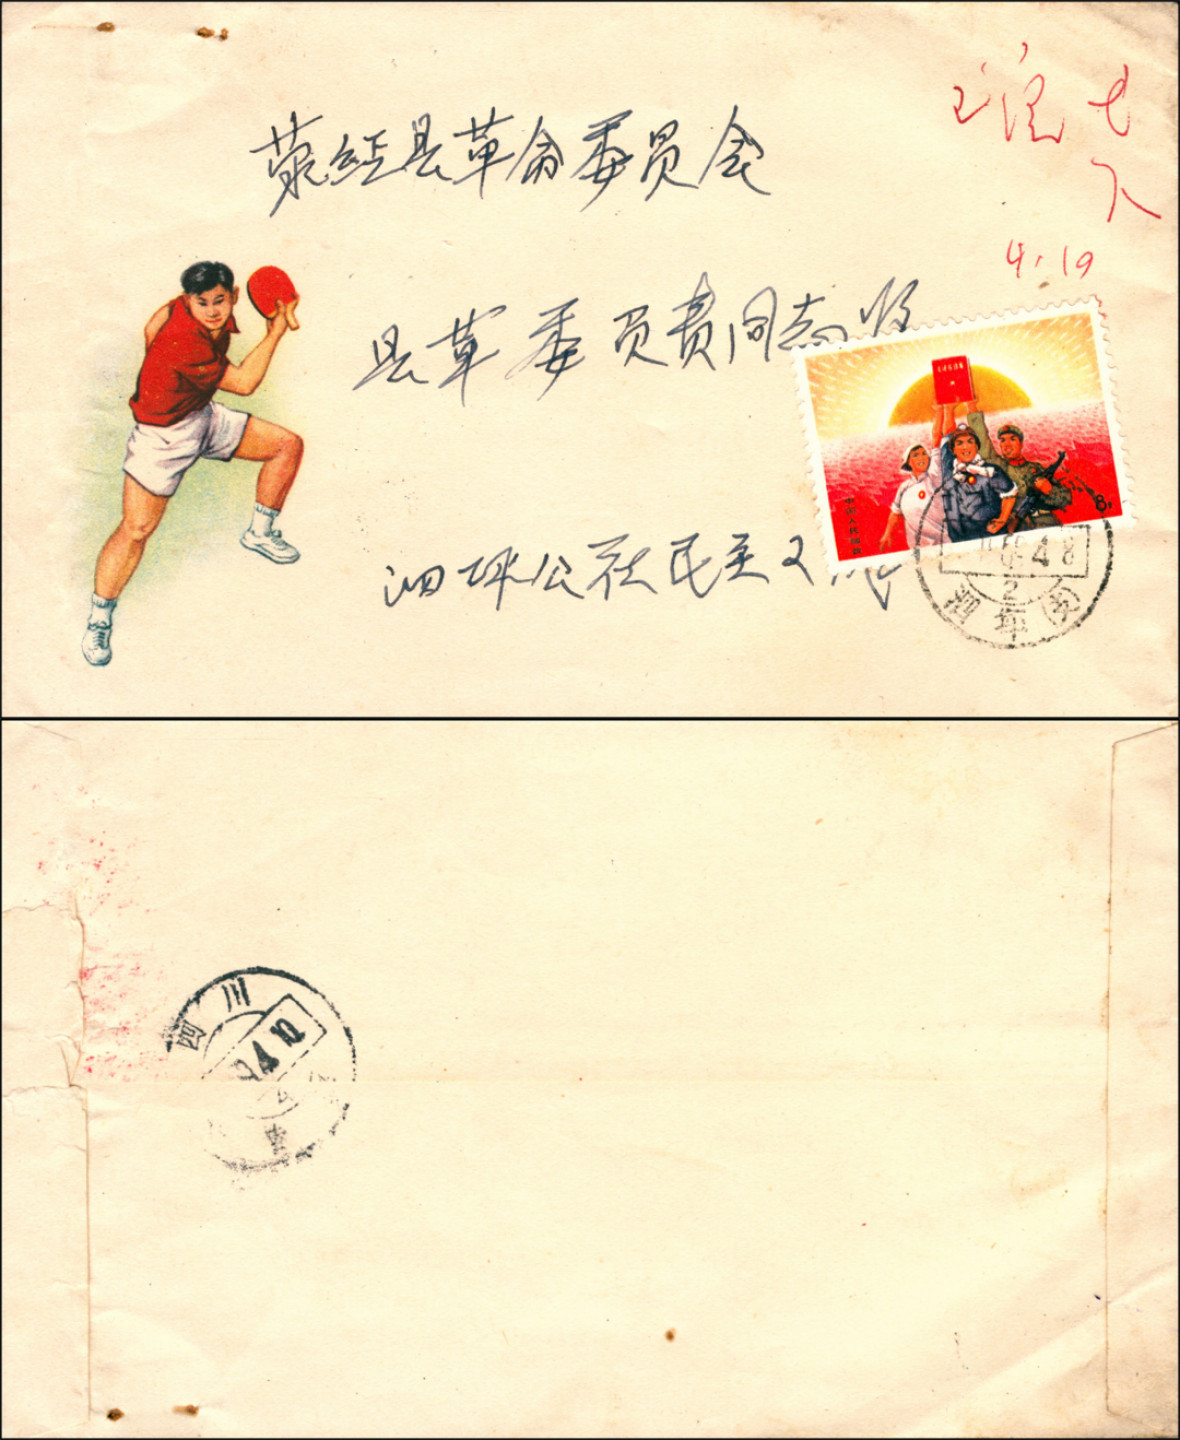 荥经县革命委员会
县革委员责同志收
泗坪公社民主又
4.19
中国人民邮政
8分
69.4.8
2
泗坪
四川
9.4.10